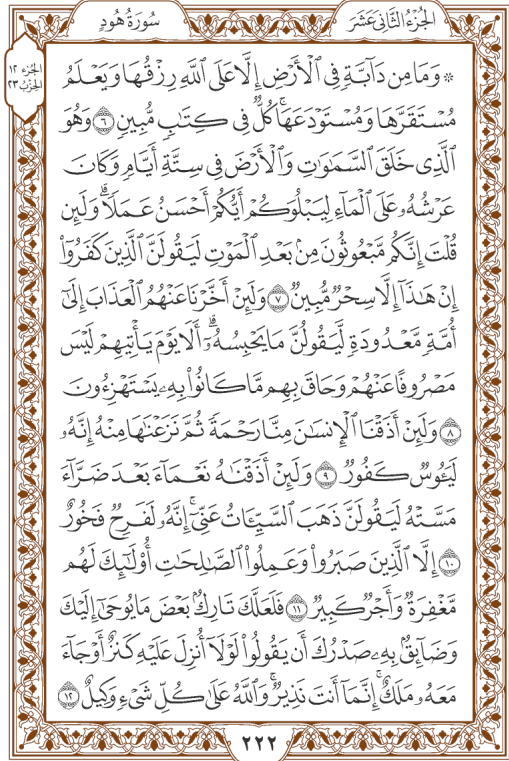 الجُزْءُ الثَّانِي عَشَرَ
سُورَةُ هُودٍ
الجُزء ١٢
الحِزبُ ٢٣
۞ وَمَا مِن دَآبَّةٖ فِي ٱلۡأَرۡضِ إِلَّا عَلَى ٱللَّهِ رِزۡقُهَا وَيَعۡلَمُ
مُسۡتَقَرَّهَا وَمُسۡتَوۡدَعَهَاۚ كُلّٞ فِي كِتَٰبٖ مُّبِينٖ ٦ وَهُوَ
ٱلَّذِي خَلَقَ ٱلسَّمَٰوَٰتِ وَٱلۡأَرۡضَ فِي سِتَّةِ أَيَّامٖ وَكَانَ
عَرۡشُهُۥ عَلَى ٱلۡمَآءِ لِيَبۡلُوَكُمۡ أَيُّكُمۡ أَحۡسَنُ عَمَلٗاۗ وَلَئِن
قُلۡتَ إِنَّكُم مَّبۡعُوثُونَ مِنۢ بَعۡدِ ٱلۡمَوۡتِ لَيَقُولَنَّ ٱلَّذِينَ كَفَرُوٓاْ
إِنۡ هَٰذَآ إِلَّا سِحۡرٞ مُّبِينٞ ٧ وَلَئِنۡ أَخَّرۡنَا عَنۡهُمُ ٱلۡعَذَابَ إِلَىٰٓ
أُمَّةٖ مَّعۡدُودَةٖ لَّيَقُولُنَّ مَا يَحۡبِسُهُۥٓۗ أَلَا يَوۡمَ يَأۡتِيهِمۡ لَيۡسَ
مَصۡرُوفًا عَنۡهُمۡ وَحَاقَ بِهِم مَّا كَانُواْ بِهِۦ يَسۡتَهۡزِءُونَ
٨ وَلَئِنۡ أَذَقۡنَا ٱلۡإِنسَٰنَ مِنَّا رَحۡمَةٗ ثُمَّ نَزَعۡنَٰهَا مِنۡهُ إِنَّهُۥ
لَيَـُٔوسٞ كَفُورٞ ٩ وَلَئِنۡ أَذَقۡنَٰهُ نَعۡمَآءَ بَعۡدَ ضَرَّآءَ
مَسَّتۡهُ لَيَقُولَنَّ ذَهَبَ ٱلسَّيِّـَٔاتُ عَنِّيٓۚ إِنَّهُۥ لَفَرِحٞ فَخُورٌ
١٠ إِلَّا ٱلَّذِينَ صَبَرُواْ وَعَمِلُواْ ٱلصَّٰلِحَٰتِ أُوْلَٰٓئِكَ لَهُم
مَّغۡفِرَةٞ وَأَجۡرٞ كَبِيرٞ ١١ فَلَعَلَّكَ تَارِكُۢ بَعۡضَ مَا يُوحَىٰٓ إِلَيۡكَ
وَضَآئِقُۢ بِهِۦ صَدۡرُكَ أَن يَقُولُواْ لَوۡلَآ أُنزِلَ عَلَيۡهِ كَنزٌ أَوۡ جَآءَ
مَعَهُۥ مَلَكٌۚ إِنَّمَآ أَنتَ نَذِيرٞۚ وَٱللَّهُ عَلَىٰ كُلِّ شَيۡءٖ وَكِيلٌ ١٢
٢٢٢